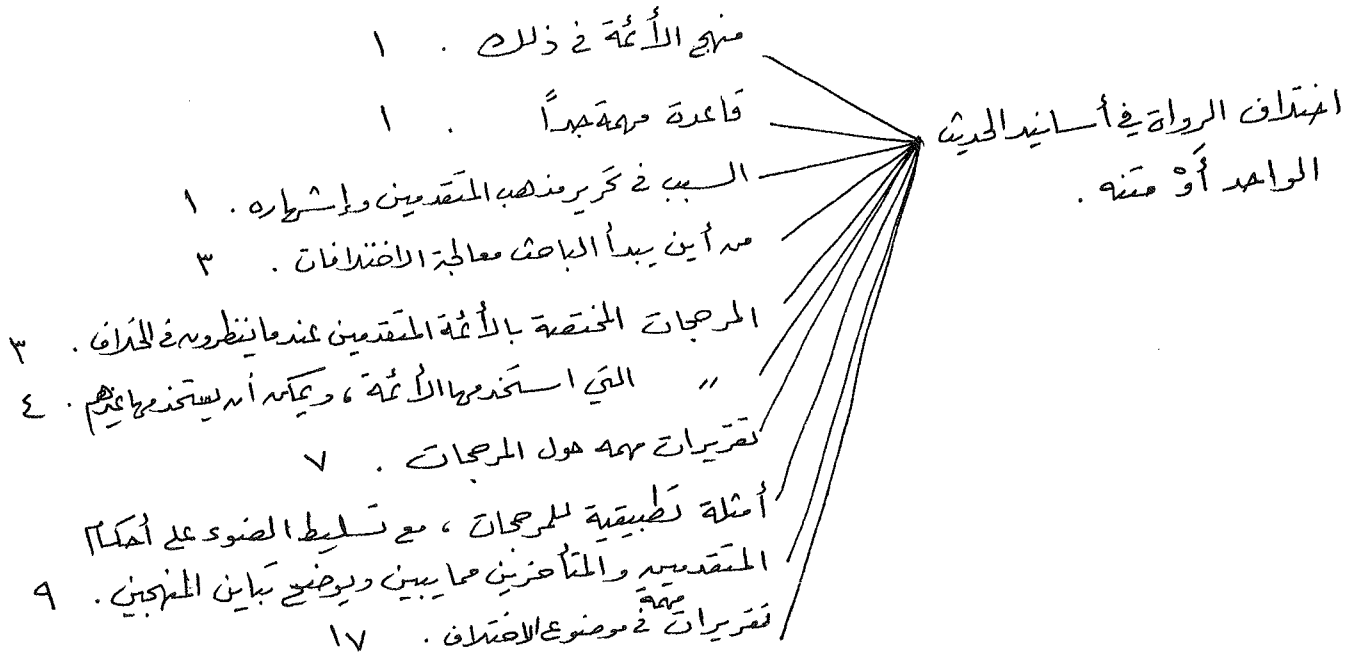 اختلاف الرواة في أسانيد الحديث
الواحد أَوْ متنه .
منهج الأئمة في ذلك . ١
قاعدة مهمة جداً . ١
السبب في تحرير مذهب المتقدمين وإشهاره . ١
من أين يبدأ الباحث معالجة الاختلافات . ٣
المرجحات المختصة بالأئمة المتقدمين عندما ينظرون في الخلاف . ٣
〃 التي استخدمها الأئمة ، ويمكن أن يستخدمها غيرهم . ٤
تقريرات مهمه حول المرجحات . ٧
أمثلة تطبيقية للمرجحات ، مع تسليط الضوء على أحكام
المتقدمين والمتأخرين مما يبين ويوضح تباين المنهجين . ٩
تقريرات مهمة في موضوع الاختلاف . ١٧